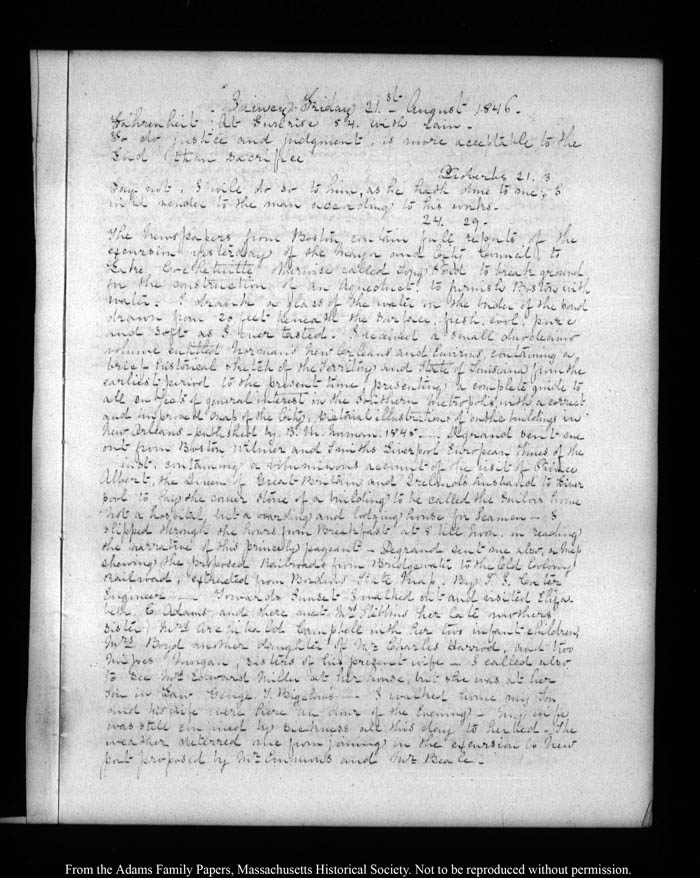 Quincy Friday 21.st August 1846.
Fahrenheit. At Sunrise 54. with rain.
To do justice and judgment, is more acceptable to the
Lord than sacrifice
Proverbs 21. 3
Say not, I will do so to him, as he hath done to me; I
will render to the man according to his works.
24. 29.
The Newspapers from Boston contain full reports of the
excursion yesterday of the Mayor and City Council, to
Lake Cochituate otherwise called Long Pond to break ground
for the construction of an Aqueduct, to furnish Boston with
water. I drank a glass of the water in the of the pond
drawn from 20 feet beneath the surface, fresh, cool, pure
and soft as I ever tasted. I received a small duodecimo
volume entitled Norman's New Orleans and Environs, containing a
brief historical sketch of the Territory and State of Louisiana from the
earliest period to the present time, presenting a complete guide to
all subjects of general interest in the Southern Metropolis, with a correct
and improved map of the City, pictorial illustrations of public buildings in
New Orleans - published by B. M. Norman. 1845. — Degrand sent me
out from Boston Wilmer and Smith's Liverpool European Times of the
inst. containing a voluminous account of the visit of Prince
Albert, the Queen of Great Britain and Ireland's husband to Liver
pool to lay the corner stone of a building to be called the Sailors' home
not a hospital, but a boarding and lodging house for Seamen - I
slipped through the hours from Breakfast at 8 till Noon, in reading
the narrative of this princely pageant - Degrand sent me also, a Map
shewing the proposed Railroads from Bridgewater to the Old Colony
railroad, extracted from Borden's State Map. By
Engineer — Towards Sunset I walked out and visited Eliza-
beth C. Adams, and there met Mrs. Stebbins her late mother's
sister, Mrs. Archibald Campbell with her two infant children,
Mrs. Boyd another daughter of Mr. Charles Harrod, and two
Misses Morgan, sisters of his present wife - I called also
to see Mrs. Edward Miller at her house, but she was at her
Son in Law George T. Bigelow's — I walked home my Son
and his wife were here an hour of the Evening - My wife
was still confined by sickness all this day to her bed - The
weather deterred me from joining in the excursion to New
port proposed by Mr. Emmons and Mr. Beale -
From the Adams Family Papers, Massachusetts Historical Society. Not to be reproduced without permission.